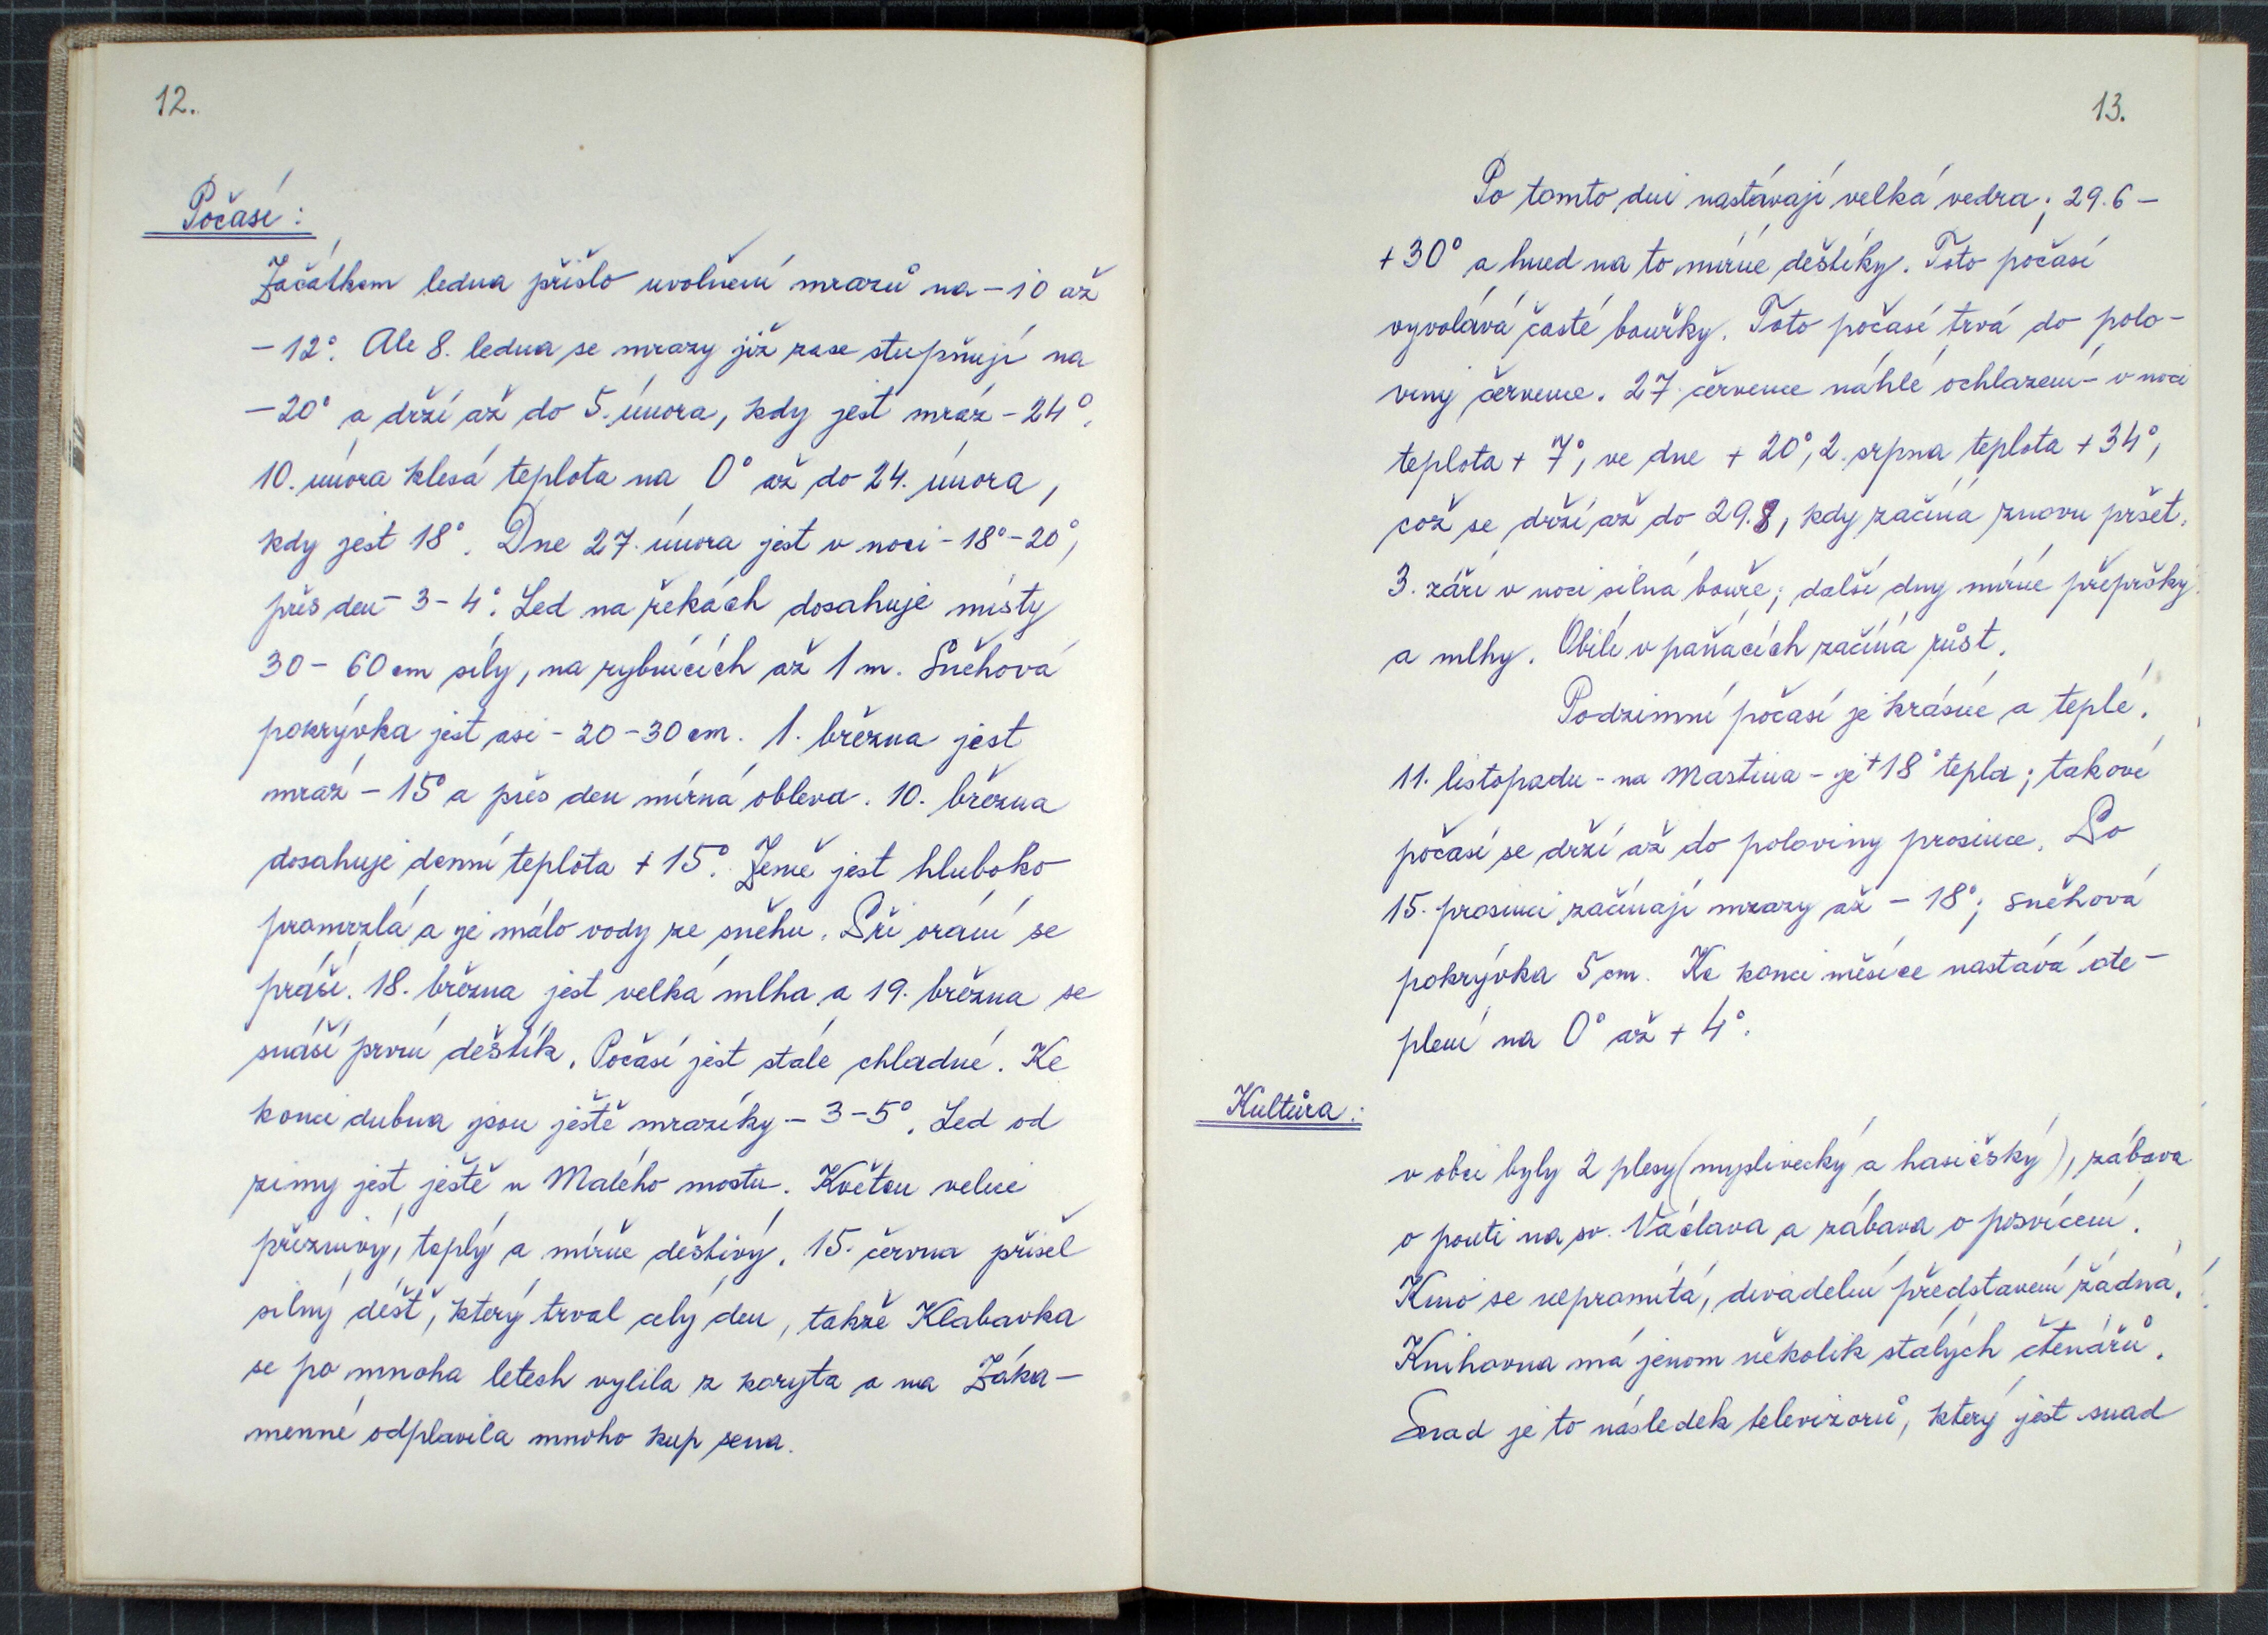 12.
Počasí:
Začátkem ledna přišlo uvolnění mrazů na -10 až
-12°. Ale 8. ledna se mrazy již zase stupňují na
-20° a drží až do 5. února, kdy jest mráz -24°.
10. února klesá teplota na 0° až do 24. února,
kdy jest 18°. Dne 27. února jest v noci -18°-20°,
přes den - 3-4°. Led na řekách dosahuje místy
30-60 cm síly, na rybnících až 1 m. Sněhová
pokrývka jest asi - 20-30 cm. 1. března jest
mráz - 15° a přes den mírná obleva. 10. března
dosahuje denní teplota +15°. Země jest hluboko
promrzlá a je málo vody ze sněhu. Při orání se
práší. 18. března jest velká mlha a 19. března se
snáší první deštík. Počasí jest stále chladné. Ke
konci dubna jsou ještě mrazíky - 3-5°. Led od
zimy jest ještě u Malého mostu. Květen velice
příznivý, teplý a mírně deštivý. 15. června přišel
silný déšť, který trval celý den, takže Klabavka
se po mnoha letech vylila z koryta a na Záka-
menné odplavila mnoho kup sena.
13.
Po tomto dni nastávají velká vedra; 29.6 -
+30° a hned na to mírné deštíky. Toto počasí
vyvolává časté bouřky. Toto počasí trvá do polo-
viny července. 27. července náhlé ochlazení - v noci
teplota + 7°, ve dne + 20°, 2. srpna teplota + 34°,
což se drží až do 29.8, kdy začíná znovu pršet.
3. září v noci silná bouře; další dny mírné přepršky
a mlhy. Obilí v panácích začíná růst.
Podzimní počasí je krásné a teplé.
11. listopadu - na Martina - je +18° tepla; takové
počasí se drží až do poloviny prosince. Po
15. prosinci začínají mrazy až - 18°; sněhová
pokrývka 5 cm. Ke konci měsíce nastává ote-
plení na 0° až + 4°.
Kultura:
v obci byly 2 plesy (myslivecký a hasičský), zábava
o pouti na sv. Václava a zábava o posvícení.
Kino se nepromítá, divadelní představení žádná.
Knihovna má jenom několik stálých čtenářů.
Snad je to následek televizorů, který jest snad